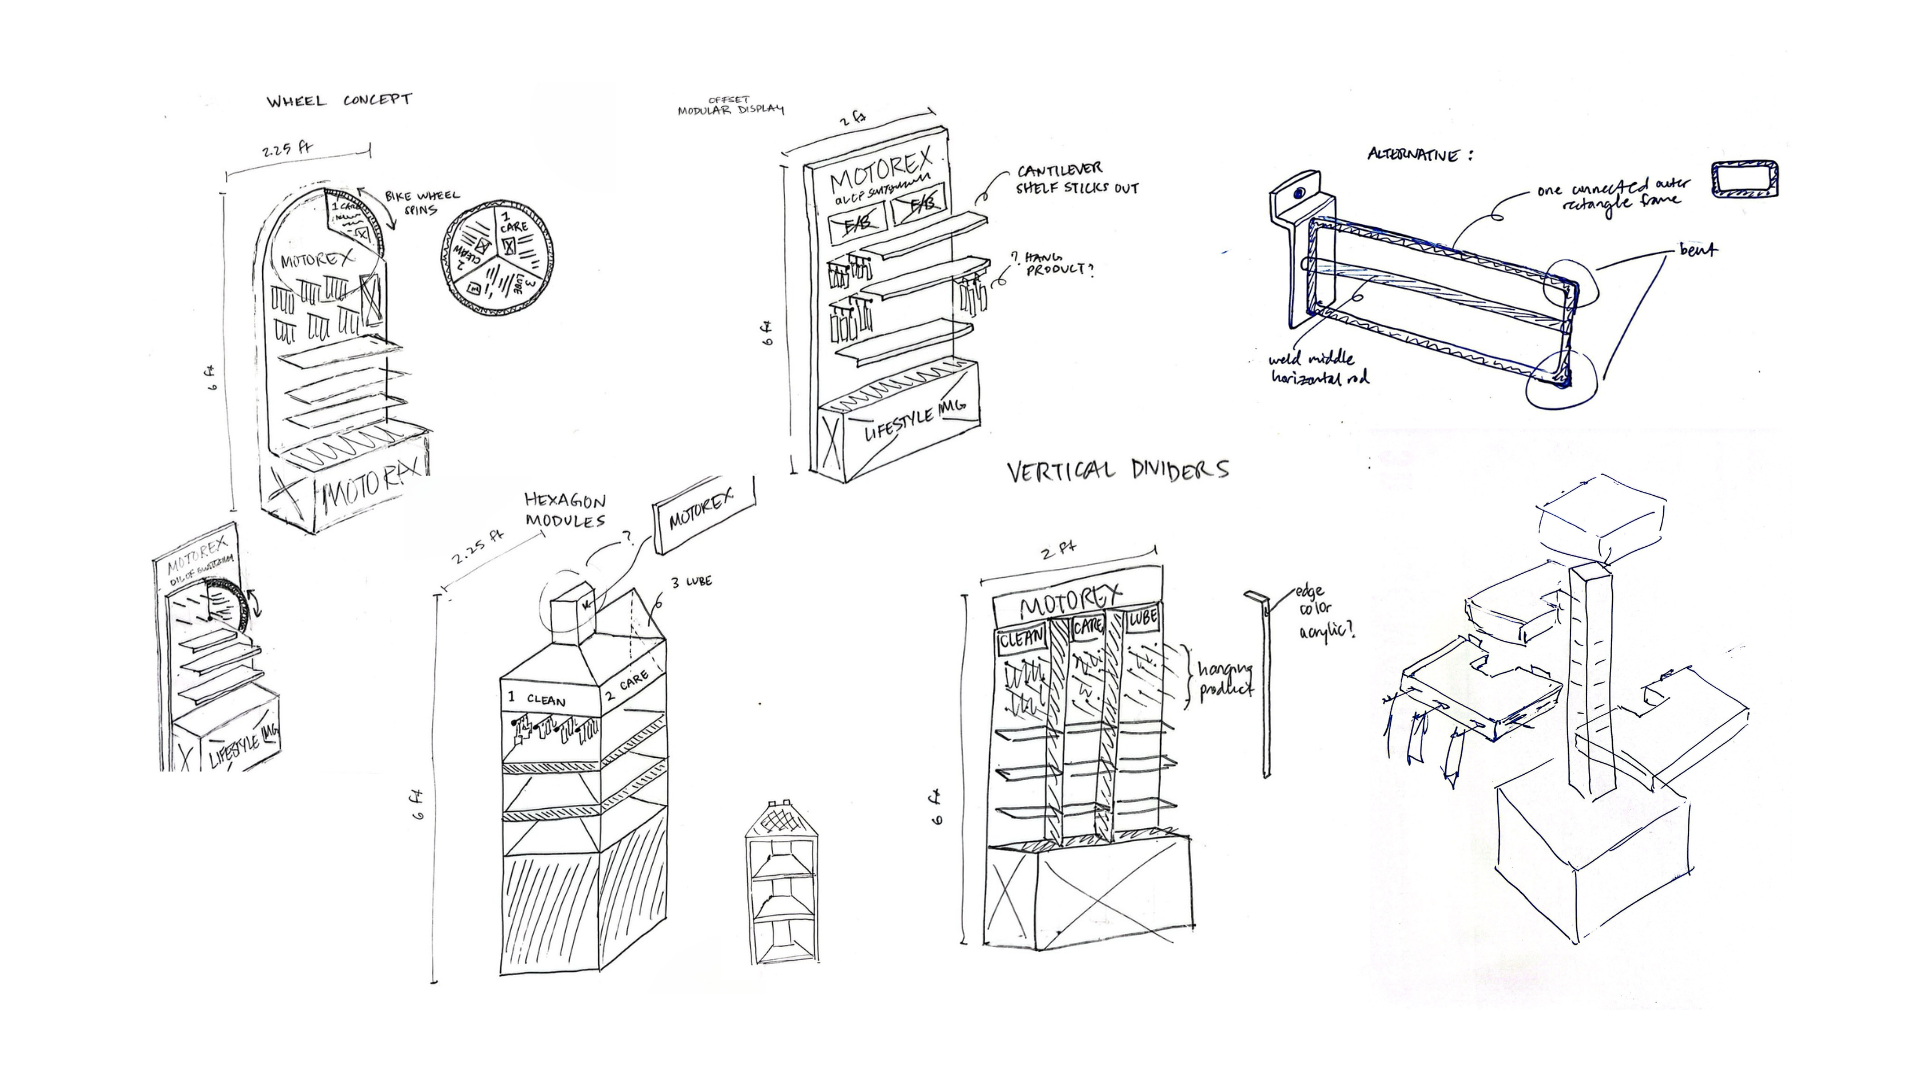 WHEEL CONCEPT
2.25 ft
6 ft
1 CARE
BIKE WHEEL
SPINS
MOTOREX
MOTOREX
1
CARE
CLEAN
2
LUBE
3
MOTOREX
OIL OF
LIFESTYLE IMG
OFFSET
MODULAR DISPLAY
2 ft
6 ft
MOTOREX
F/B
F/B
CANTILEVER
SHELF STICKS OUT
? HANG
PRODUCT?
LIFESTYLE IMG
ALTERNATIVE :
one connected outer
rectangle frame
bent
weld middle
horizontal rod
HEXAGON
MODULES
2.25 ft
?
MOTOREX
3 LUBE
1 CLEAN
2 CARE
6 ft
VERTICAL DIVIDERS
2 ft
6 ft
MOTOREX
CLEAN
CARE
LUBE
hanging
product
edge
color
acrylic?